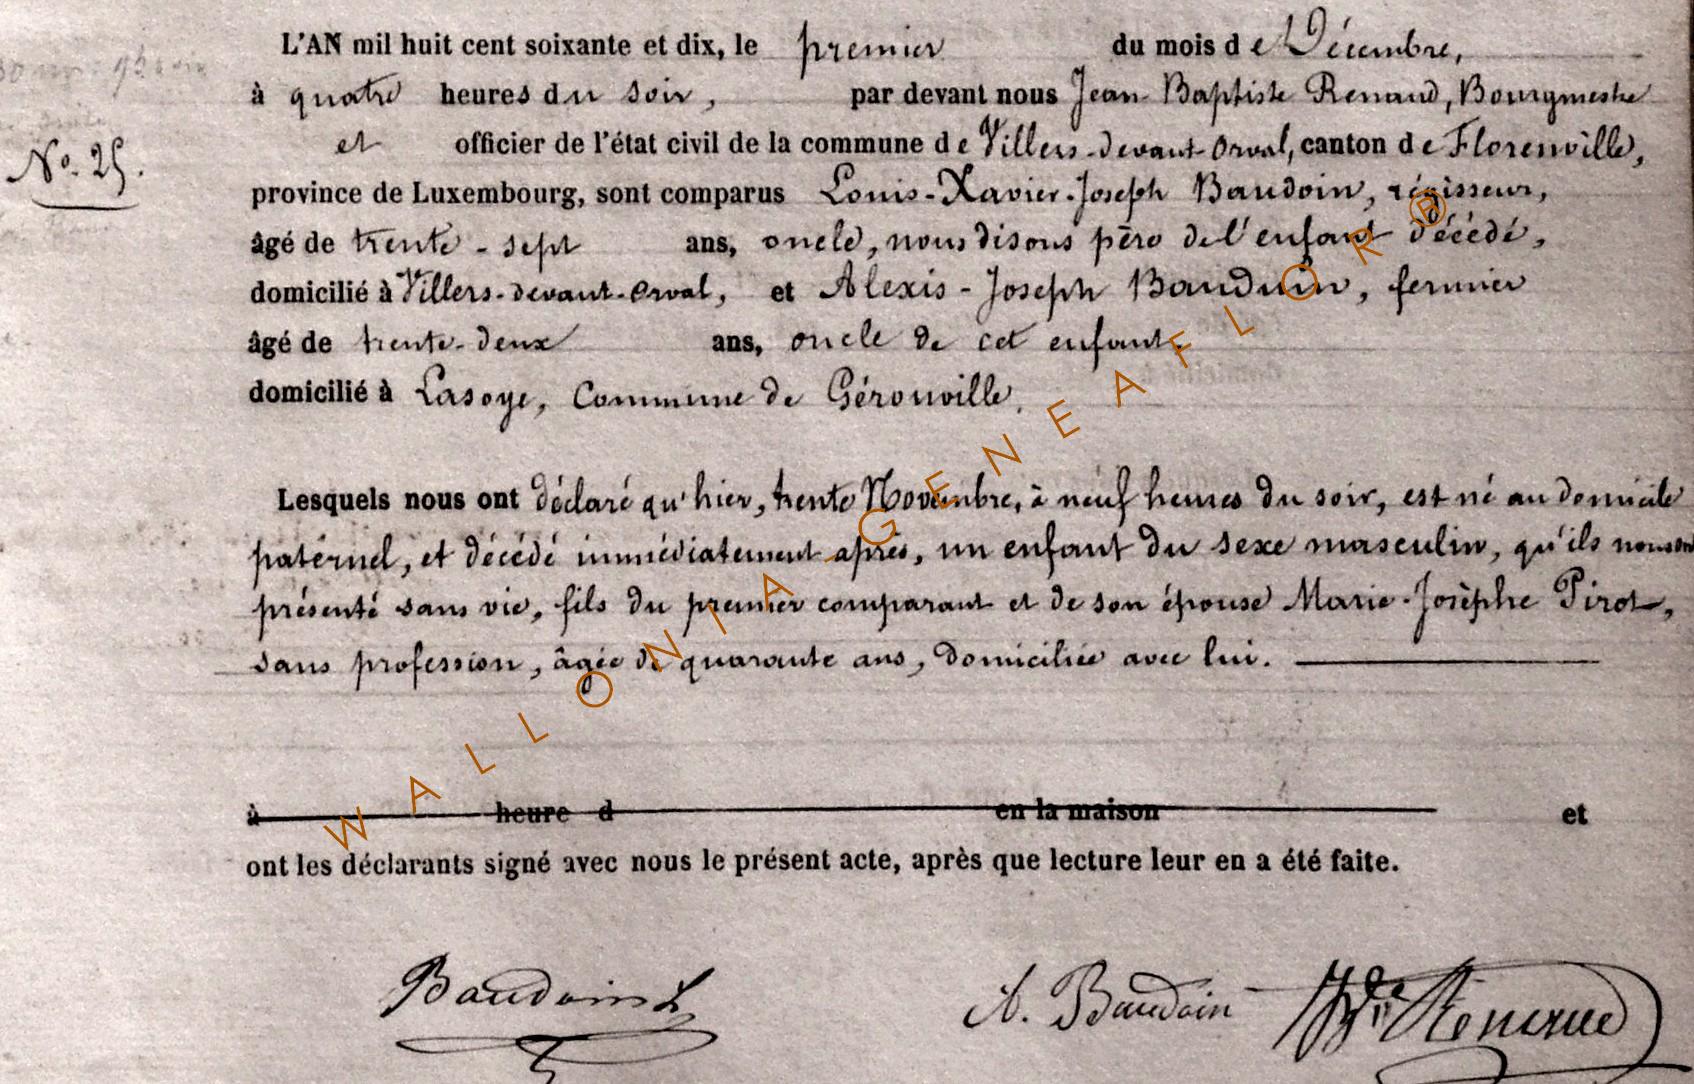 L'AN mil huit cent soixante et dix, le premier du mois de Décembre,
à quatre heures du soir, par devant nous Jean Baptiste Renaud, Bourgmestre
et officier de l'état civil de la commune de Villers-devant-Orval, canton de Florenville,
No. 25.
province de Luxembourg, sont comparus Louis-Xavier-Joseph Baudoin, régisseur,
âgé de trente-sept ans, oncle, nous disons père de l'enfant décédé,
domicilié à Villers-devant-Orval, et Alexis-Joseph Baudoin, fermier
âgé de trente-deux ans, oncle de cet enfant
domicilié à Lasoye, Commune de Gérouville.
Lesquels nous ont déclaré qu'hier, trente Novembre, à neuf heures du soir, est né au domicile
paternel, et décédé immédiatement après, un enfant du sexe masculin, qu'ils nous ont
présenté sans vie, fils du premier comparant et de son épouse Marie-Josèphe Pirot,
sans profession, âgée de quarante ans, domiciliée avec lui.
à heure d en la maison et
ont les déclarants signé avec nous le présent acte, après que lecture leur en a été faite.
Baudoin L A. Baudoin Renaud
WALLONIA-GENEAFLOR®